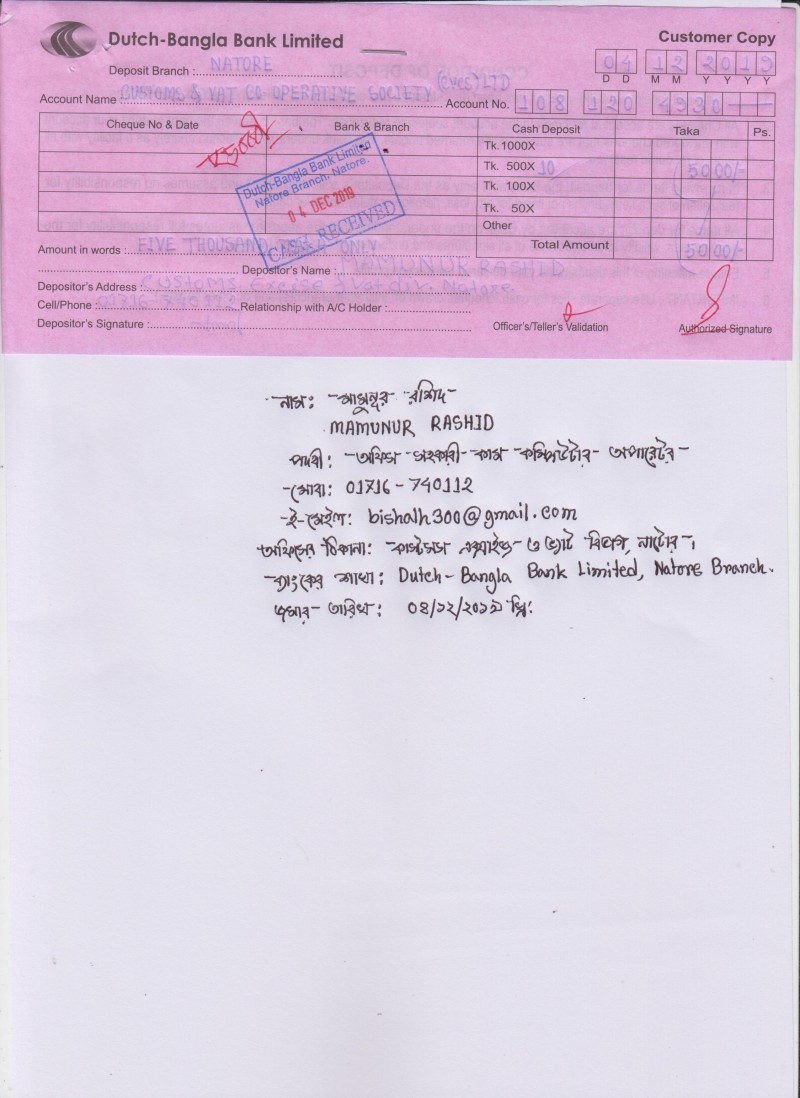 Dutch-Bangla Bank Limited
Customer Copy
Deposit Branch : NATORE
04 12 2019
D D M M Y Y Y Y
Account Name : CUSTOMS & VAT CO-OPERATIVE SOCIETY (CVCS) LTD Account No. 108 120 4930
Cheque No & Date Bank & Branch Cash Deposit Taka Ps.
Tk.1000X
Tk. 500X 10 5000/-
Tk. 100X
Tk. 50X
Other
Total Amount 5000/-
Dutch-Bangla Bank Limited
Natore Branch, Natore.
04 DEC 2019
CASH RECEIVED
Amount in words : FIVE THOUSAND ONLY
Depositor's Name : MAMUNUR RASHID
Depositor's Address : Customs, Excise & Vat div. Natore.
Cell/Phone : 01716-740112 Relationship with A/C Holder :
Depositor's Signature :
Officer's/Teller's Validation
Authorized Signature
নাম: মামুনুর রশিদ
MAMUNUR RASHID
পদবী: অফিস সহকারী কাম কম্পিউটার অপারেটর
মোবা: 01716-740112
ই-মেইল: bishalh300@gmail.com
অফিসের ঠিকানা: কাস্টমস এক্সাইজ ও ভ্যাট বিভাগ, নাটোর।
ব্যাংকের শাখা: Dutch-Bangla Bank Limited, Natore Branch.
জমার তারিখ: ০৪/১২/২০১৯ খ্রি: